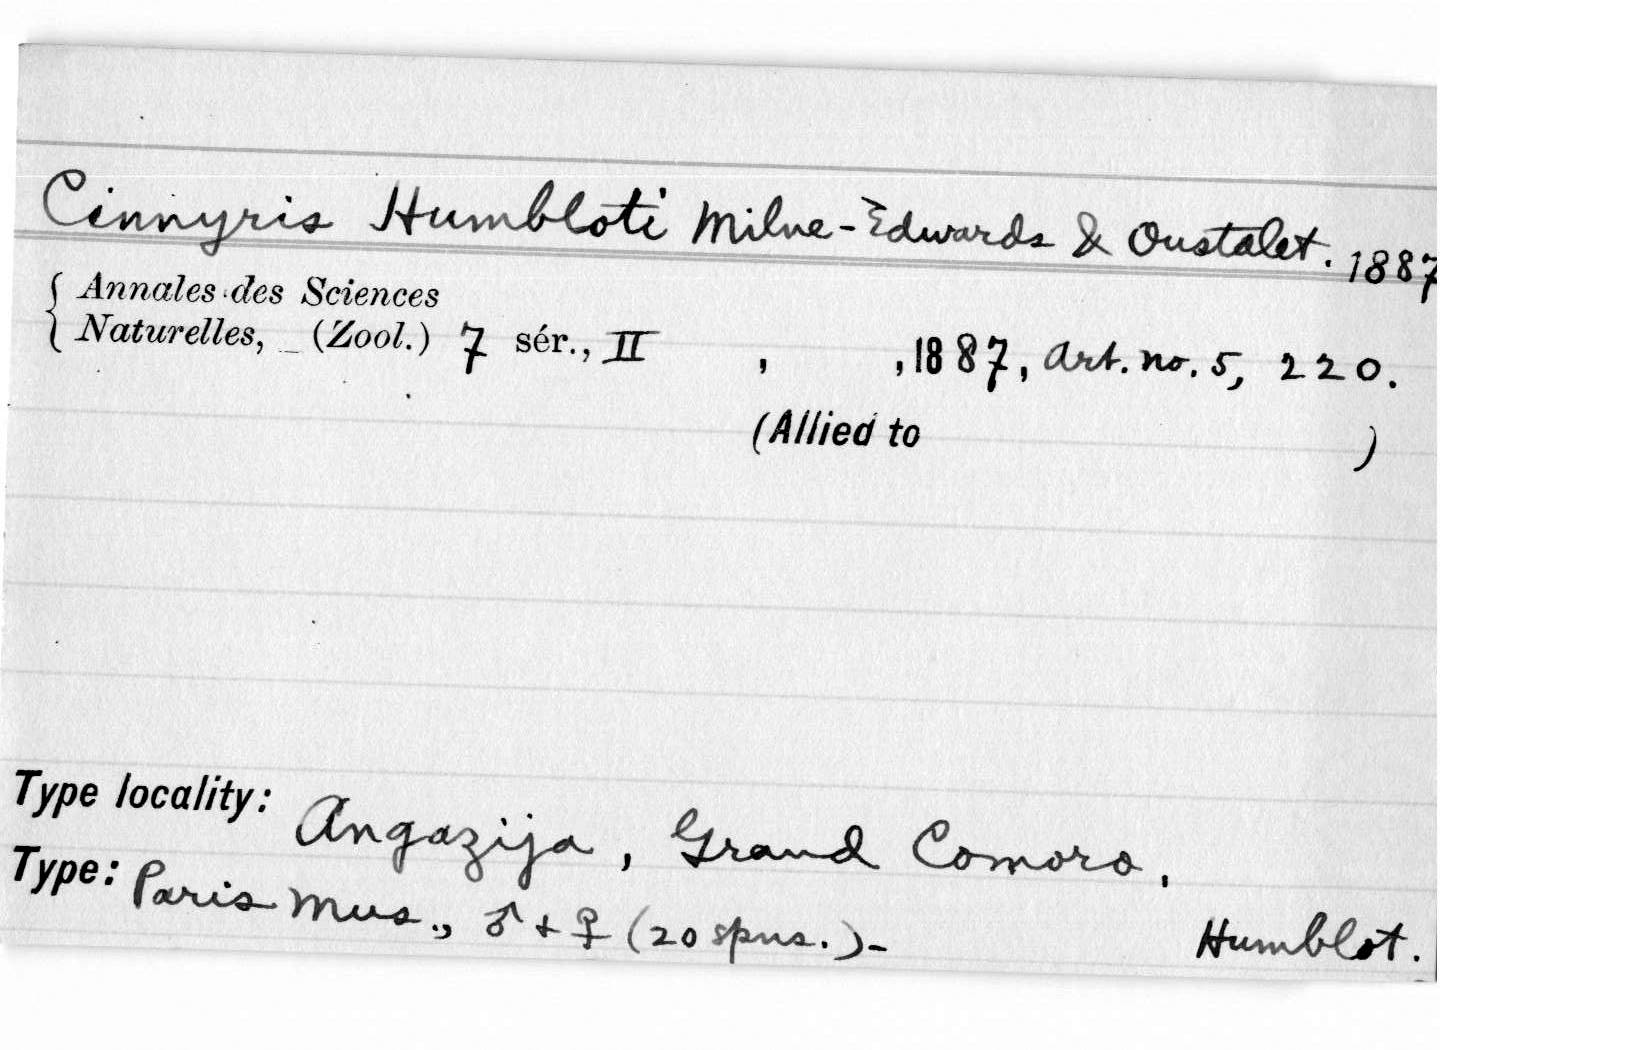 Cinnyris Humbloti Milne-Edwards & Oustalet. 1887
{ Annales des Sciences
Naturelles, _ (Zool.) 7 sér., II , ,1887, Art. no. 5, 220.
(Allied to )
Type locality: Angazija, Grand Comoro.
Type: Paris Mus., ♂ + ♀ (20 spns.)- Humblot.